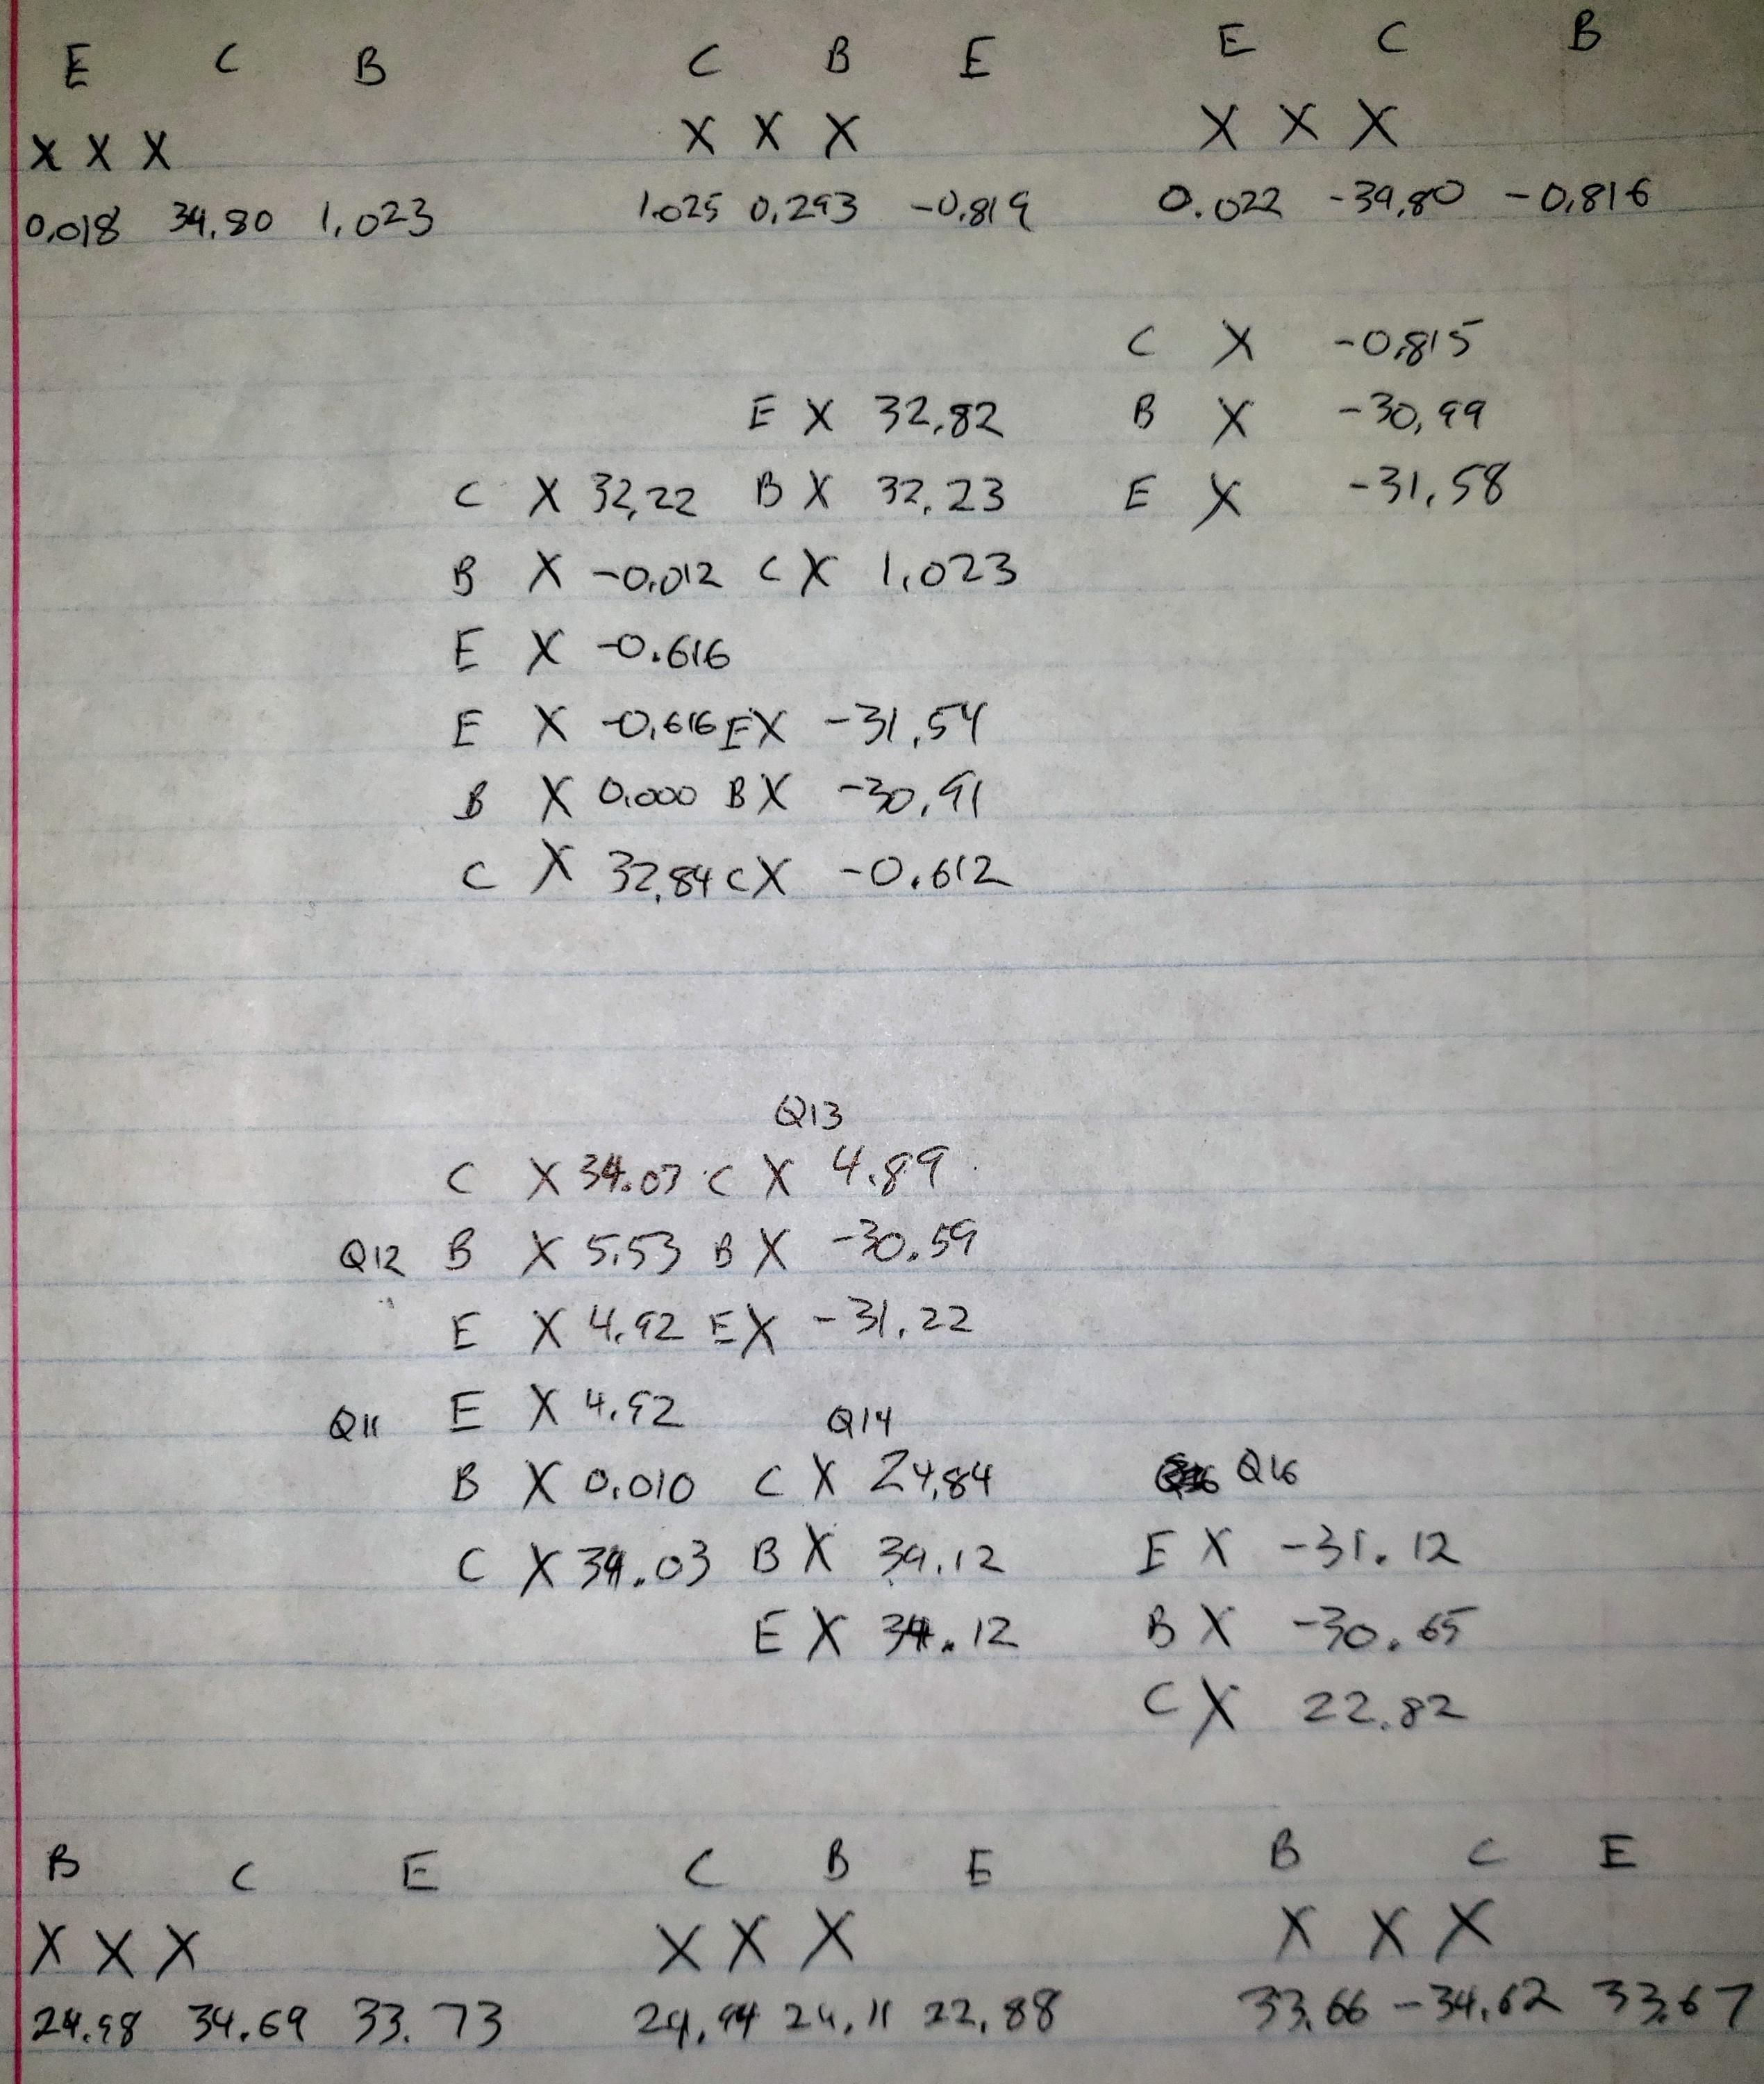 E C B C B E E C B
X X X X X X X X X
0.018 34.80 1.023 1.025 0.293 -0.819 0.022 -34.80 -0.816
C X -0.815
E X 32.82 B X -30.99
C X 32.22 B X 32.23 E X -31.58
B X -0.012 C X 1.023
E X -0.616
E X -0.616 E X -31.54
B X 0.000 B X -30.91
C X 32.84 C X -0.612
Q13
C X 34.03 C X 4.89
Q12 B X 5.53 B X -30.59
E X 4.92 E X -31.22
Q11 E X 4.92 Q14
B X 0.010 C X 24.84 Q16
C X 34.03 B X 34.12 E X -31.12
E X 34.12 B X -30.65
C X 22.82
B C E C B E B C E
X X X X X X X X X
24.98 34.69 33.73 24.94 24.11 22.88 33.66 -34.62 33.67